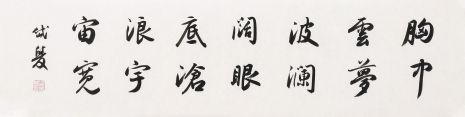 胸中
雲夢
波澜
阔眼
底滄
浪宇
宙宽